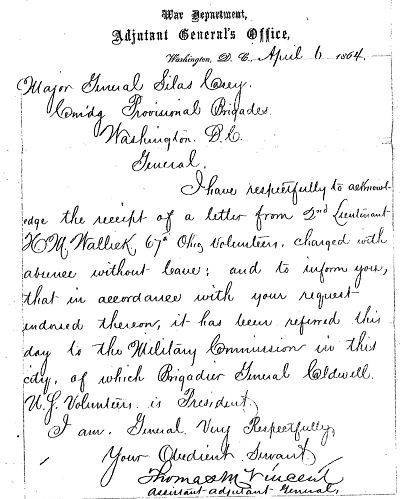 War Department,
Adjutant General's Office,
Washington, D. C., April 6 1864.
Major General Silas Casey.
Com'dg Provisional Brigades
Washington. D.C.
General.
I have respectfully to acknowl-
edge the receipt of a letter from 2nd Lieutenant
H.M. Wallick 67th Ohio Volunteers. charged with
absence without leave; and to inform you,
that in accordance with your request
endorsed thereon, it has been referred this
day to the Military Commission in this
city, of which Brigadier General Caldwell.
U.S. Volunteers. is President.
I am. General. Very Respectfully,
Your Obedient Servant
Thomas M Vincent
Assistant adjutant General.